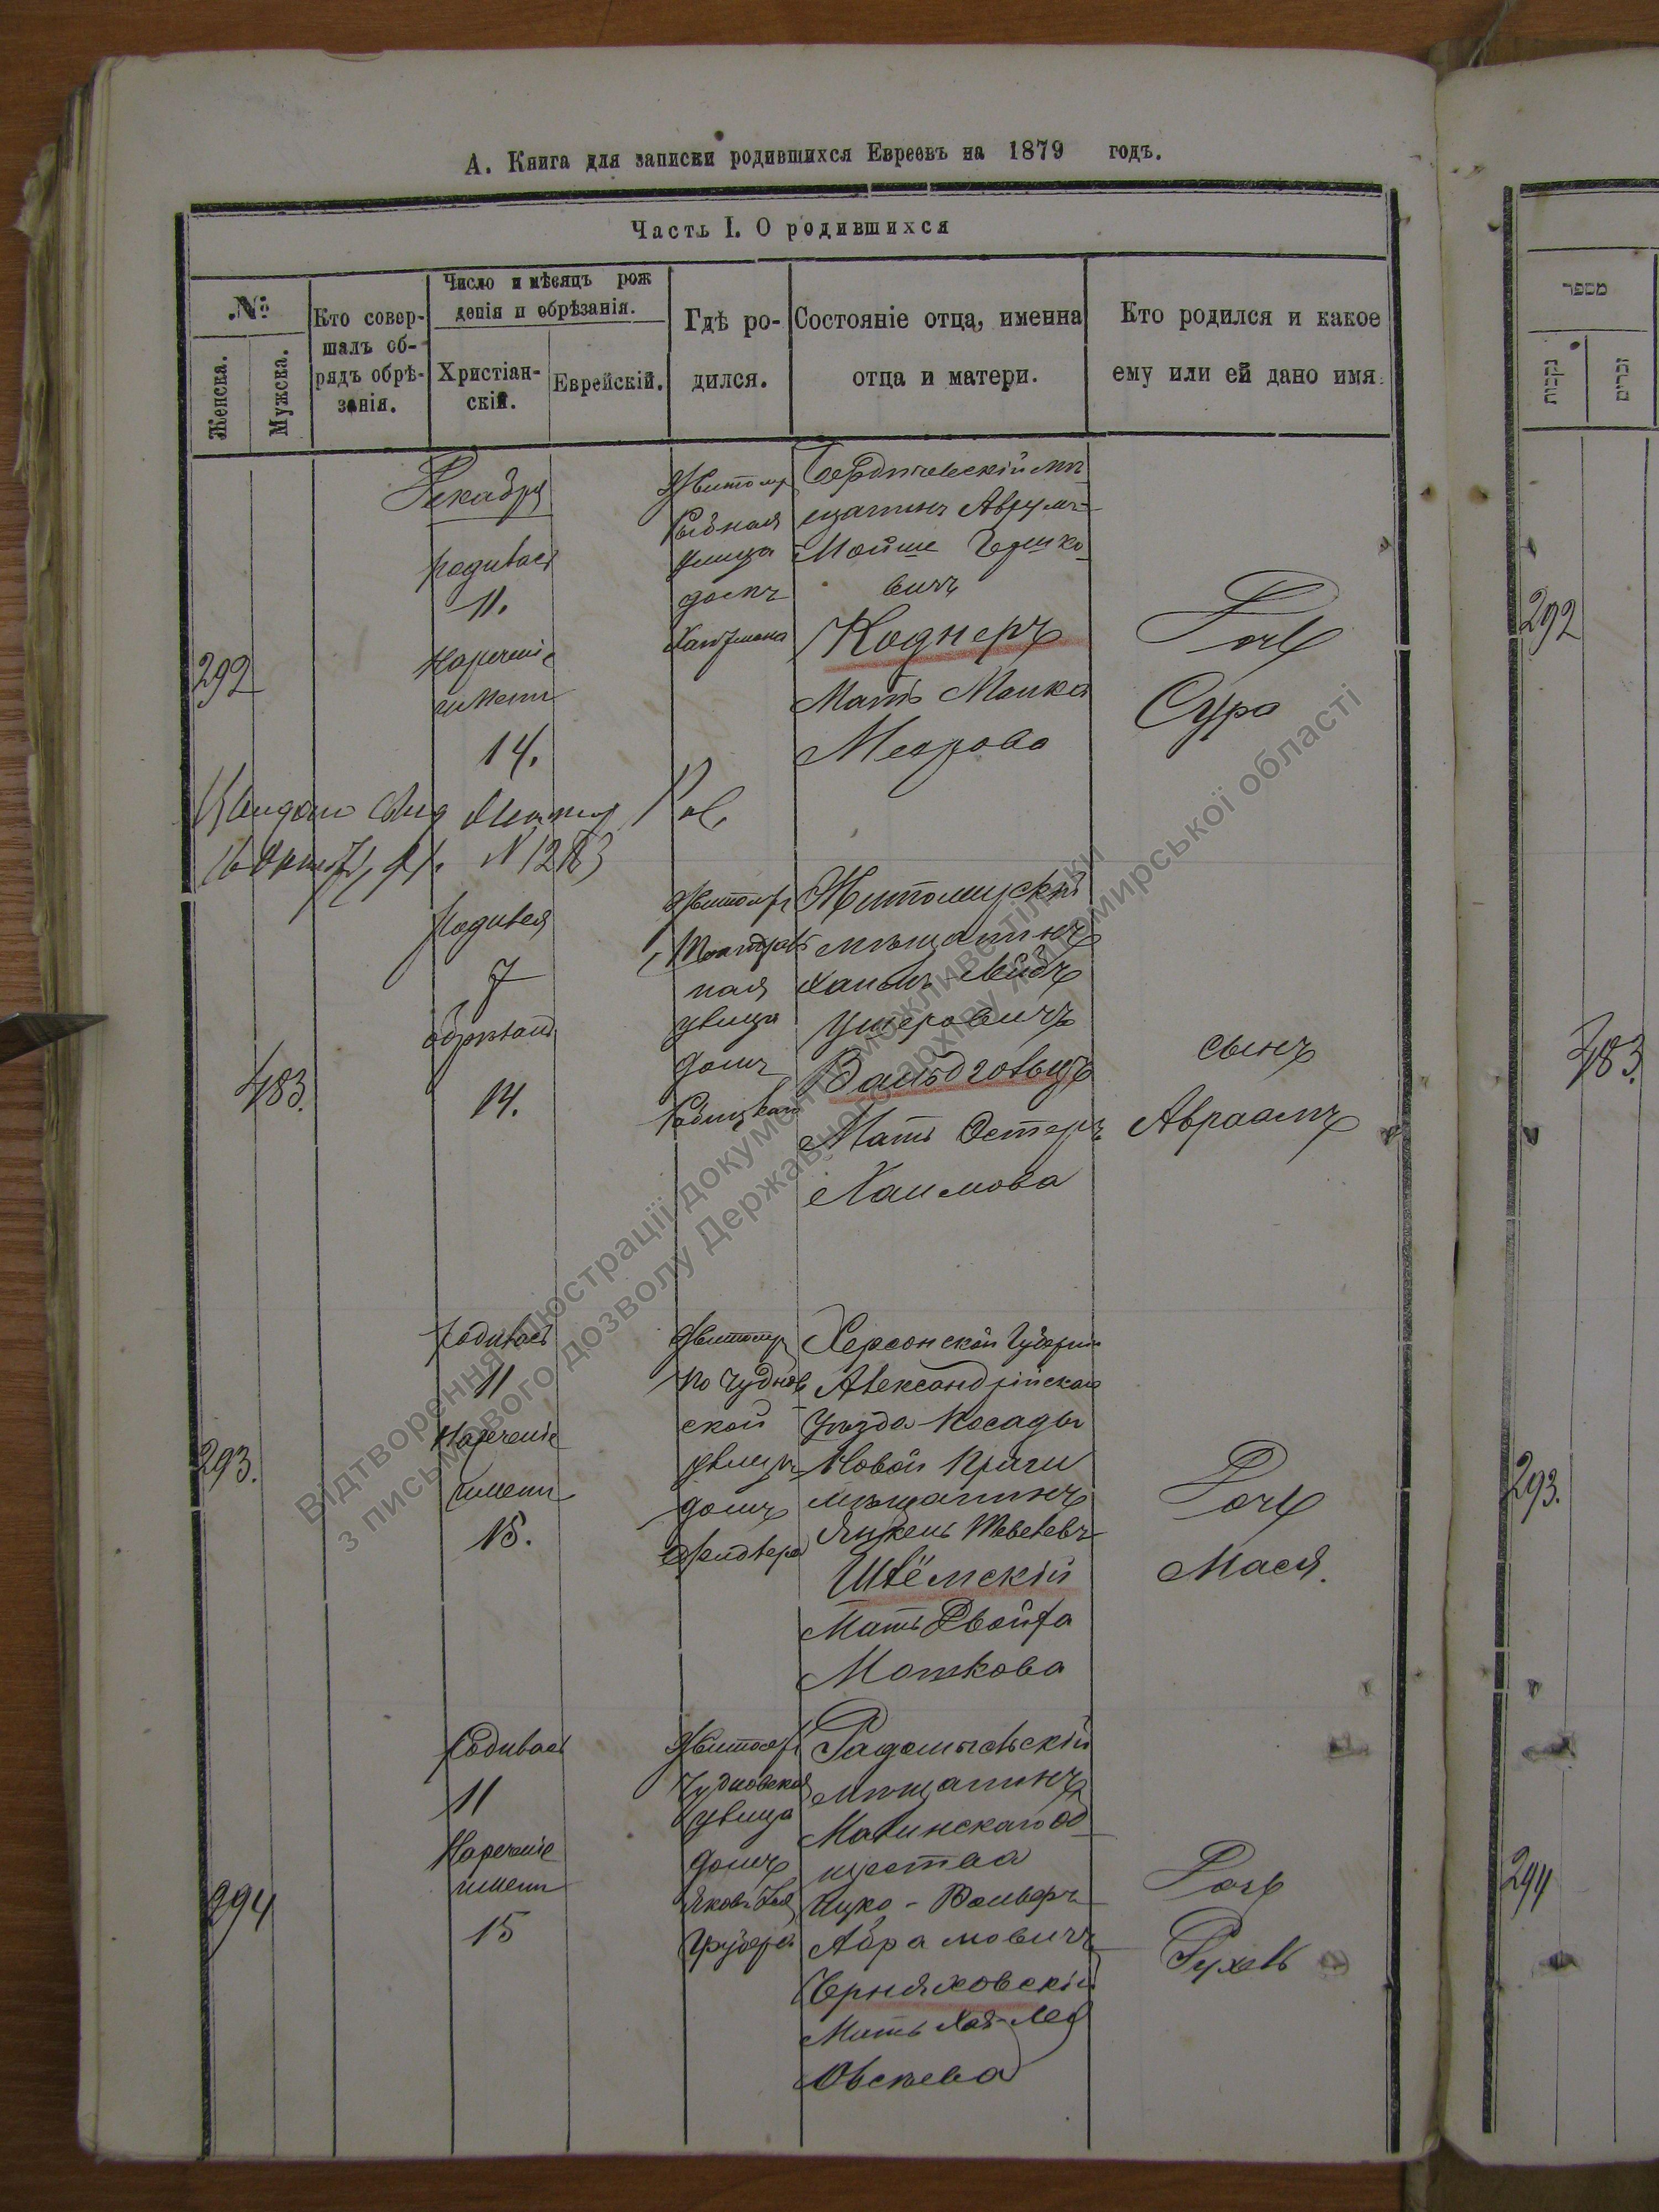 А. Книга для записки родившихся Евреевъ на 1879 годъ.
Часть I. О родившихся
№
Женска.
Мужска.
Кто совер-
шалъ об-
рядъ обрѣ-
занія.
Число и мѣсяцъ рож
денія и обрѣзанія.
Христіан-
скій.
Еврейскій.
Гдѣ ро-
дился.
Состояніе отца, именна
отца и матери.
Кто родился и какое
ему или ей дано имя.
292
Декабря
родилась
11.
Нареченіе
имени
14.
Житомр
Рыбная
улица
домъ
Бердичевскій мѣ
щанинъ Аврумъ-
Мойше Гершко-
вичъ
Коднеръ
Мать Малка
Меерова
Дочь
Сура
16 Окт. № 1283
483.
родился
7
обрѣзанъ
14.
Житомр
ная
улица
домъ
Житомирскій
мѣщанинъ
Хаимъ Лейбъ
Ушеровичъ
Вальдгольцъ
Мать Эстеръ
Хаимова
сынъ
Авраамъ
293.
родилась
11
Нареченіе
имени
15.
Житомр
по Чуднов
ской
улицѣ
домъ
Херсонской Губерніи
Александрійскаго
уѣзда Посады
Новой Праги
мѣщанинъ
Янкель
Шлёмскій
Мать Двойра
Мошкова
Дочь
Мася.
294
Родилась
11
Нареченіе
имени
15
Житомр
Чудновская
улица
домъ
Грубера
Радомысльскій
мѣщанинъ
Малинскаго об-
щества
Ицко - Вольфъ
Абрамовичъ
Черняховскій
Мать Хая-Лея
Овсѣева
Дочь
Рухль
מספר
נקבות
זכרים
292
483.
293.
294
Відтворення ілюстрації документу можливе тільки
з письмового дозволу Державного архіву Житомирської області